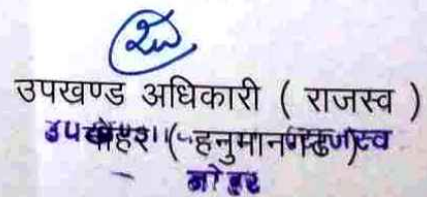 उपखण्ड अधिकारी ( राजस्व )
नोहर (हनुमानगढ़)
नोहर